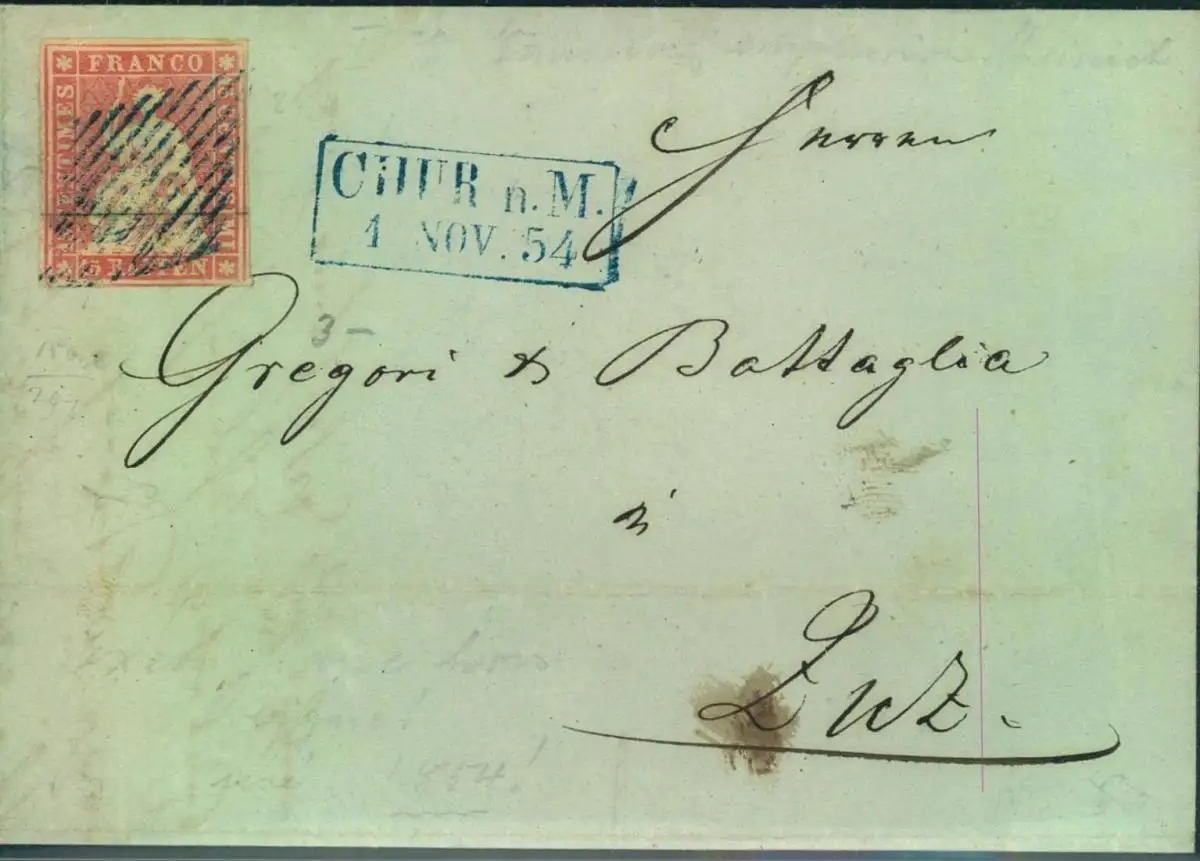 FRANCO
CENTIMES
CENTESIMI
15 RAPPEN
CHUR n. M.
1 NOV. 54
Herren
Gregori & Battaglia
3 –
in
Zuz.
1854!